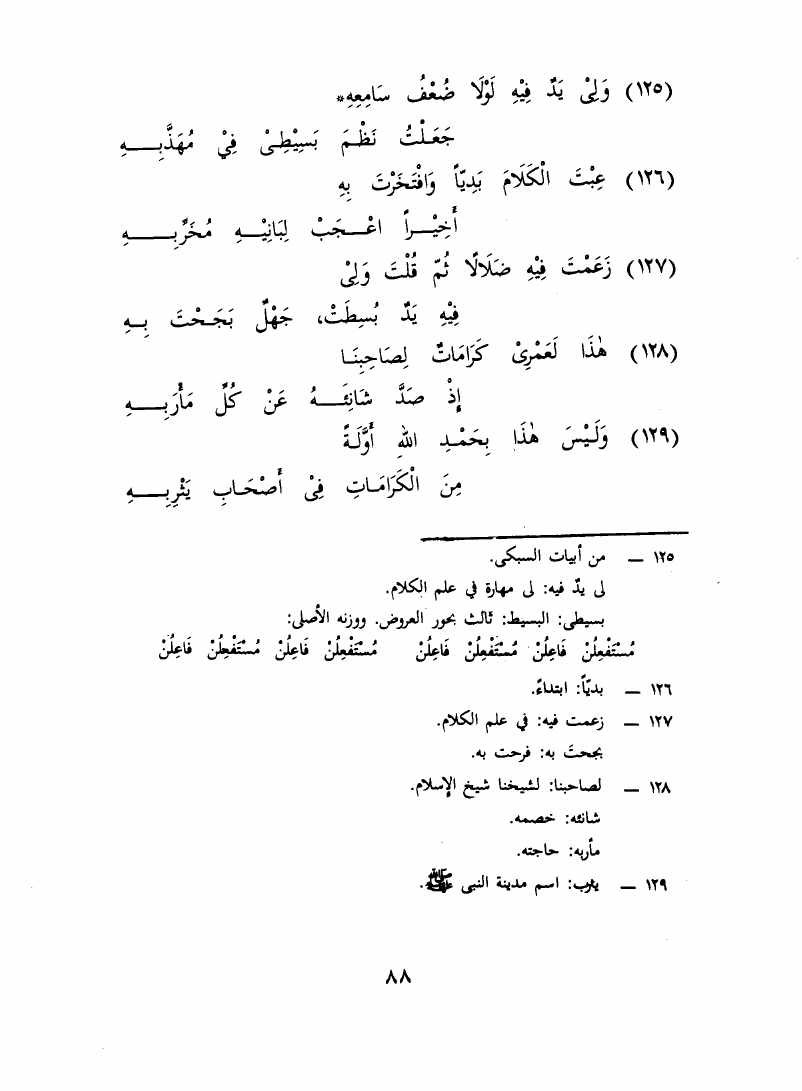 (١٢٥) وَلِيْ يَدٌ فِيْهِ لَوْلَا ضُعْفُ سَامِعِهِ*
جَعَلْتُ نَظْمَ بَسِيْطِيْ فِيْ مُهَذَّبِـــهِ
(١٢٦) عِبْتَ الْكَلَامَ بَدِيّاً وَافْتَخَرْتَ بِهِ
أَخِيْـراً اعْـجَبْ لِبَانِيْـهِ مُخَرِّبِـــهِ
(١٢٧) زَعَمْتَ فِيْهِ ضَلَالًا ثُمّ قُلْتَ وَلِيْ
فِيْهِ يَدٌ بُسِطَتْ، جَهْلٌ بَجَحْتَ بِـهِ
(١٢٨) هٰذَا لَعَمْرِيْ كَرَامَاتٌ لِصَاحِبِنَـا
إِذْ صَدَّ شَانِئَـــهُ عَنْ كُلِّ مَأْرَبِـــهِ
(١٢٩) وَلَـيْسَ هٰذَا بِحَمْـدِ اللهِ أَوَّلَـةً
مِنَ الْكَرَامَـاتِ فِيْ أَصْحَـابِ يَثْرِبِـــهِ
١٢٥ — من أبيات السبكى.
لى يدٌ فيه: لى مهارة في علم الكلام.
بسيطى: البسيط: ثالث بحور العروض. ووزنه الأصلى:
مُسْتَفْعِلُنْ فَاعِلُنْ مُسْتَفْعِلُنْ فَاعِلُنْ مُسْتَفْعِلُنْ فَاعِلُنْ مُسْتَفْعِلُنْ فَاعِلُنْ
١٢٦ — بديّاً: ابتداءً.
١٢٧ — زعمت فيه: في علم الكلام.
بجحتَ به: فرحت به.
١٢٨ — لصاحبنا: لشيخنا شيخ الإسلام.
شانئه: خصمه.
مأربه: حاجته.
١٢٩ — يثرب: اسم مدينة النبى ﷺ.
٨٨